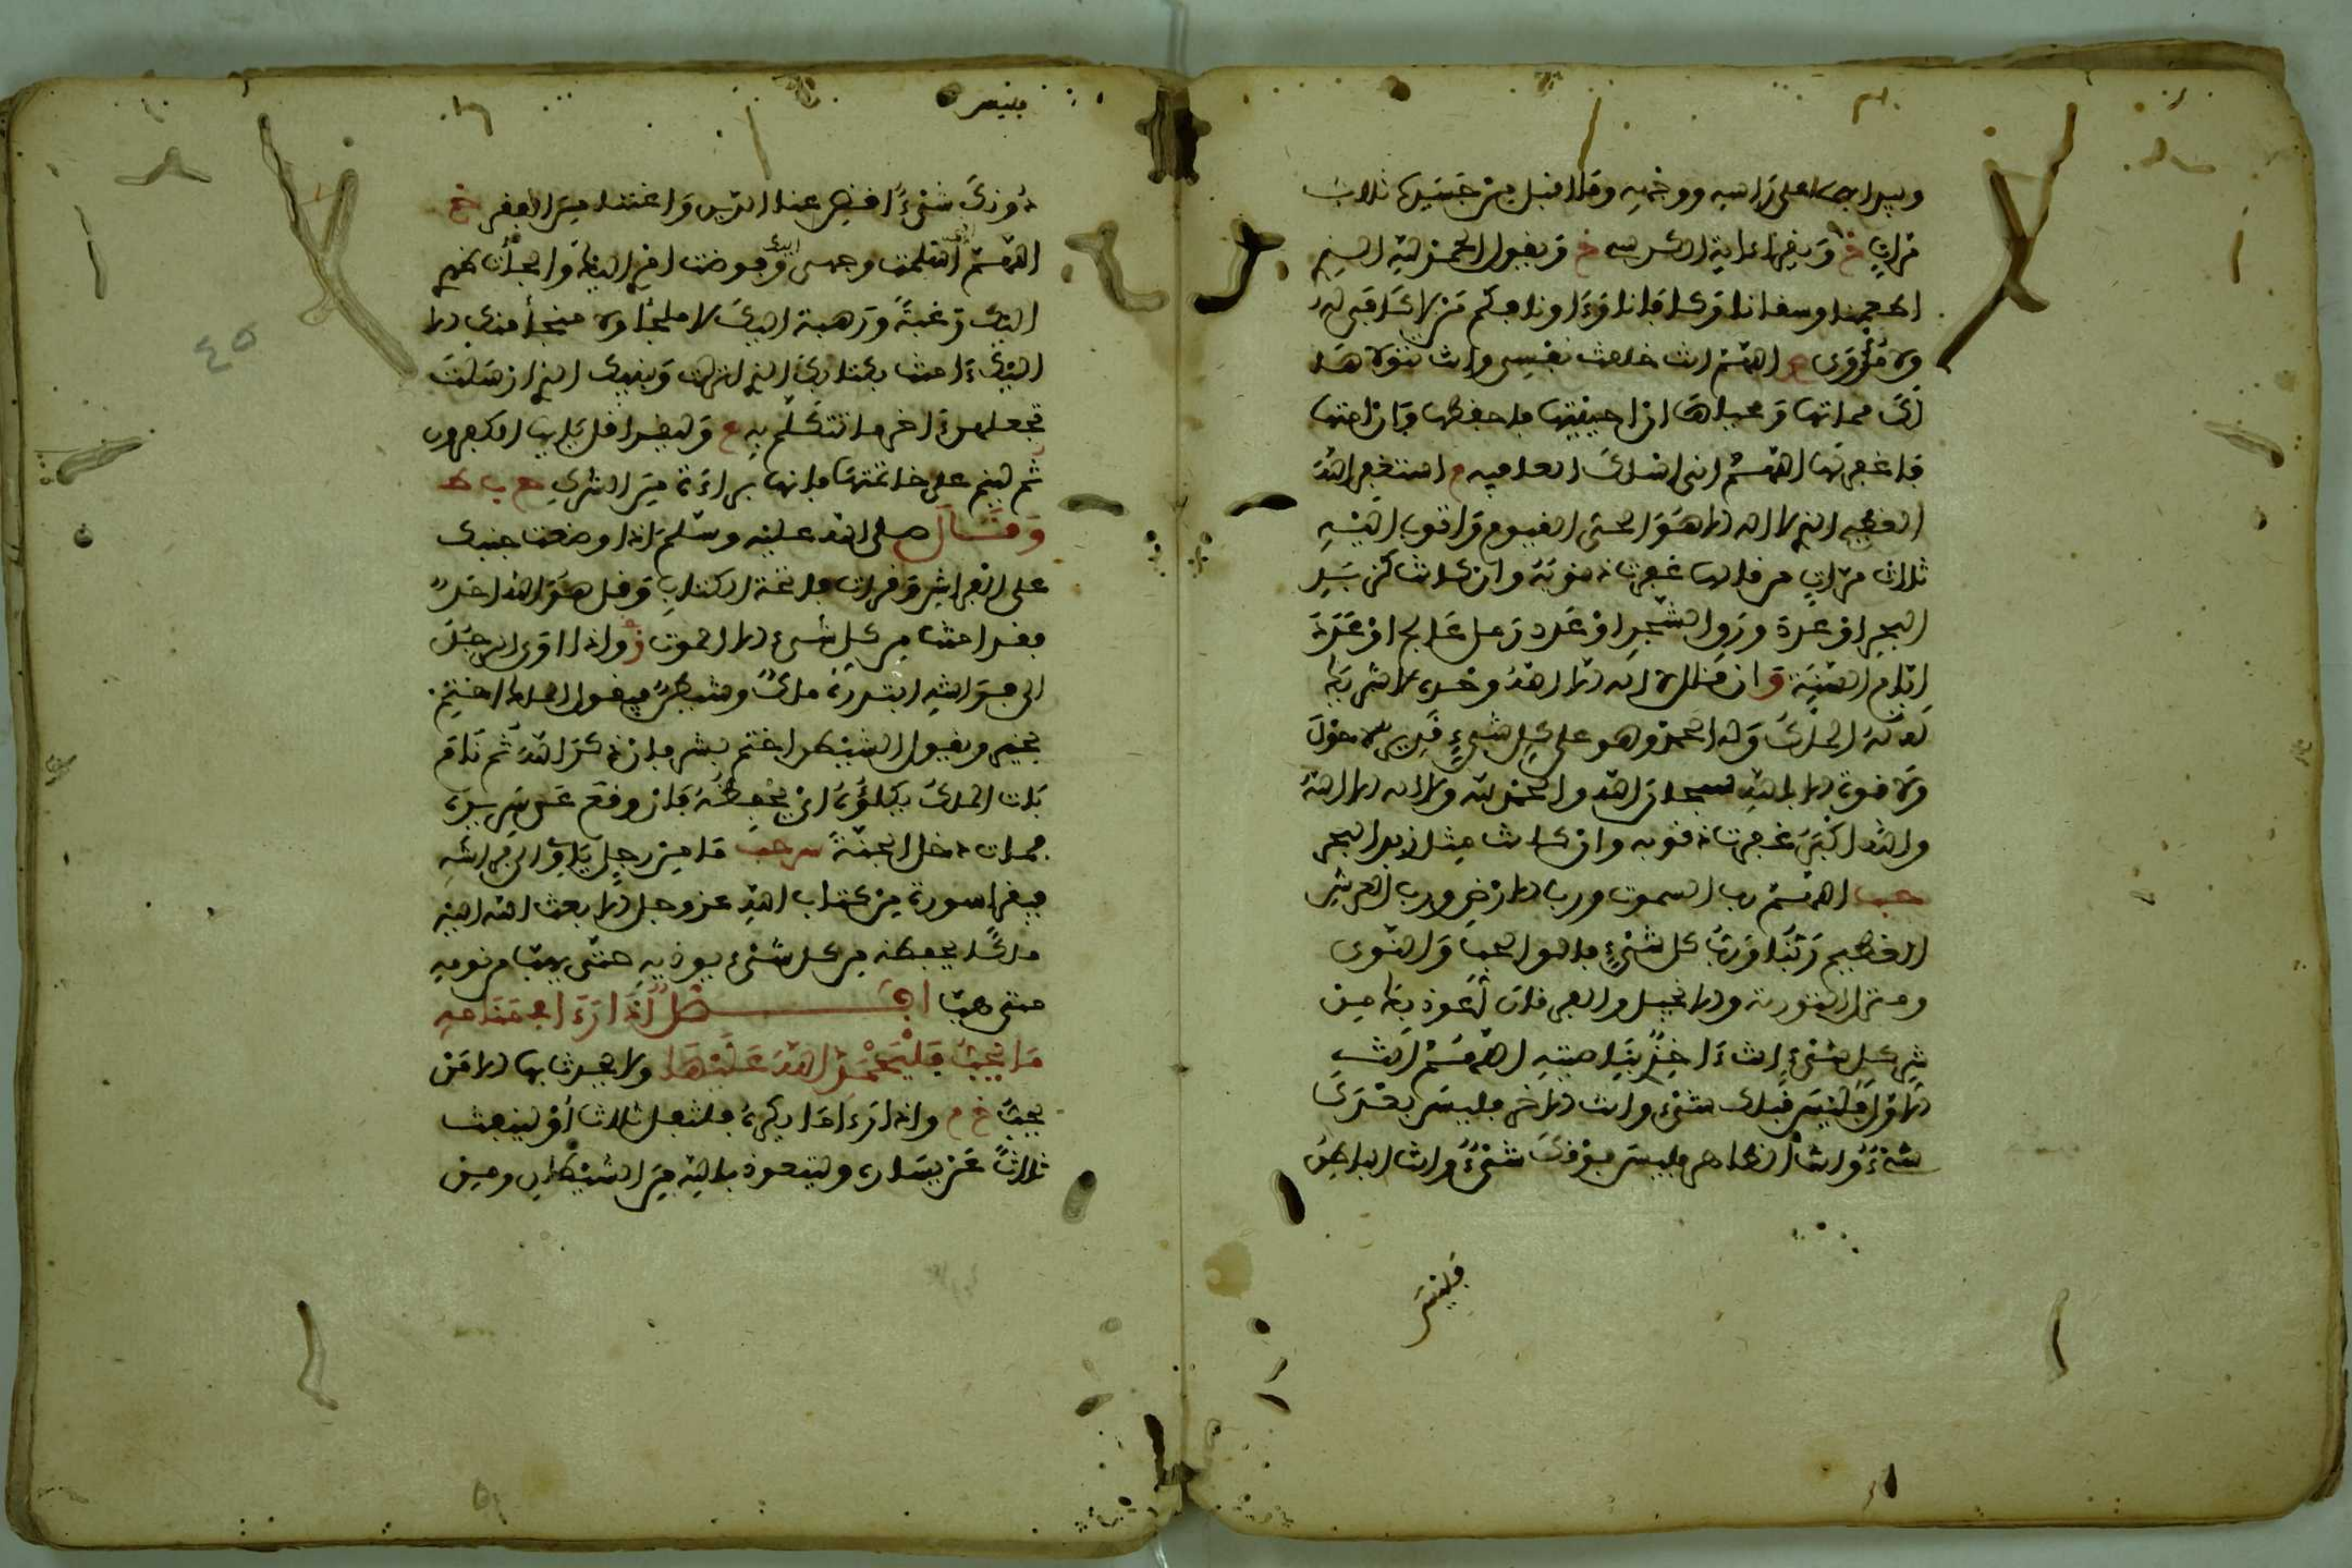 ويبدا بهما على راسه ووجهه وما اقبل من جسده ثلاث
مرات خ ويقرا ءاية الكرسي خ ويقول الحمد لله الذي
اطعمنا وسقانا وكفانا وءاوانا فكم من لا كافي له
ولا مؤوي م اللهم انت خلقت نفسي وانت تتوفاها
لك مماتها ومحياها ان احييتها فاحفظها وان امتها
فاغفر لها اللهم اني اسلك العافيه م استغفر الله
العظيم الذي لا اله الا هو الحي القيوم واتوب اليه
ثلاث مرات من قالها غفرت ذنوبه وان كانت كزبد
البحر او عدد ورق الشجر او عدد رمل عالج او عدد
ايام الدنيا وان قال لا اله الا الله وحده لا شريك
له له الملك وله الحمد وهو على كل شيء قدير لا حول
ولا قوة الا بالله سبحان الله والحمد لله ولا اله الا الله
والله اكبر غفرت ذنوبه وان كانت مثل زبد البحر
حب اللهم رب السموت ورب الارض ورب العرش
العظيم ربنا ورب كل شيء فالق الحب والنوى
ومنزل التورية والانجيل والفرقان اعوذ بك من
شر كل شيء انت ءاخذ بناصيته اللهم انت
الاول فليس قبلك شيء وانت الاخر فليس بعدك
شيء وانت الظاهر فليس فوقك شيء وانت الباطن
فليس
فليس
دونك شيء اقض عنا الدين واغننا من الفقر خ
اللهم اسلمت وجهي اليك وفوضت امري اليك والجات ظهري
اليك رغبة ورهبة اليك لا ملجا ولا منجا منك الا
اليك ءامنت بكتابك الذي انزلت ونبيك الذي ارسلت
تجعلهن ءاخر ما تتكلم به ع وليقرا قل يايها الكفرون
ثم لينم على خاتمتها فانها براءة من الشرك
وقال صلى الله عليه وسلم اذا وضعت جنبك
على الفراش وقرات فاتحة الكتاب وقل هو الله احد
فقد امنت من كل شيء الا الموت ز واذا اوى الرجل
الى فراشه ابتدره ملك وشيطن فيقول الملك اختم
بخير ويقول الشيطن اختم بشر فان ذكر الله ثم نام
بات الملك يكلؤه اي يحفظه فان وقع عن سريره
فمات دخل الجنة س حب ما من رجل ياوي الى فراشه
فيقرا سورة من كتاب الله عز وجل الا بعث الله اليه
ملكا يحفظه من كل شيء يوذيه حتى يهب من نومه
متى هب فصل اذا رءا في منامه
ما يحب فليحمد الله عليها ولا يحدث بها الا من
يحب خ م واذا رءا ما يكره فليتفل ثلاثا او لينفث
ثلاثا عن يساره وليتعوذ بالله من الشيطان ومن
٤٥